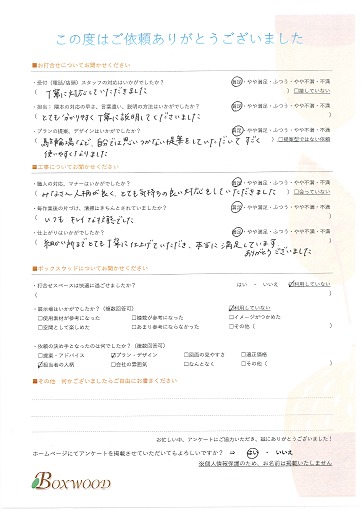 この度はご依頼ありがとうございました
■お打合せについてお聞かせください
・受付（電話/店頭）スタッフの対応はいかがでしたか？ 満足・やや満足・ふつう・やや不満・不満
（丁寧に対応していただきました ）□話していない
・担当： の対応の早さ、言葉遣い、説明の方法はいかがでしたか？ 満足・やや満足・ふつう・やや不満・不満
（とても分かりやすく丁寧に説明してくださいました ）
・プランの提案、デザインはいかがでしたか？ 満足・やや満足・ふつう・やや不満・不満
（駐輪場など、自分では思いつかない提案をしていただいてすごく ）□提案型ではない依頼
使いやすくなりました
■工事についてお聞かせください
・職人の対応、マナーはいかがでしたか？ 満足・やや満足・ふつう・やや不満・不満
（みなさん人柄が良く、とても気持ちの良い対応をしていただきました ）□会っていない
・毎作業後の片づけ、清掃はきちんとされていましたか？ 満足・やや満足・ふつう・やや不満・不満
（いつもキレイな状態でした ）
・仕上がりはいかがでしたか？ 満足・やや満足・ふつう・やや不満・不満
（細かい所までとても丁寧に仕上げていただき、本当に満足しています。
ありがとうございました ）
■ボックスウッドについてお聞かせください
・打合せスペースは快適に過ごせましたか？ はい ・ いいえ ☑利用していない
（ ）
・展示場はいかがでしたか？（複数回答可） ☑利用していない
□使用素材が参考になった □植栽が参考になった □イメージがつかめた
□空間として楽しめた □あまり参考にならなかった □その他（ ）
・依頼の決め手となったのは何でしたか？（複数回答可）
□提案・アドバイス ☑プラン・デザイン □図面の見やすさ □適正価格
☑担当者の人柄 □会社の雰囲気 □なんとなく □その他（ ）
■その他 何かございましたらご自由にお書きください
お忙しい中、アンケートにご協力いただき、誠にありがとうございました！
ホームページにてアンケートを掲載させていただいてもよろしいですか？ ⇒ はい ・ いいえ
※個人情報保護のため、お名前は掲載いたしません
BOXWOOD